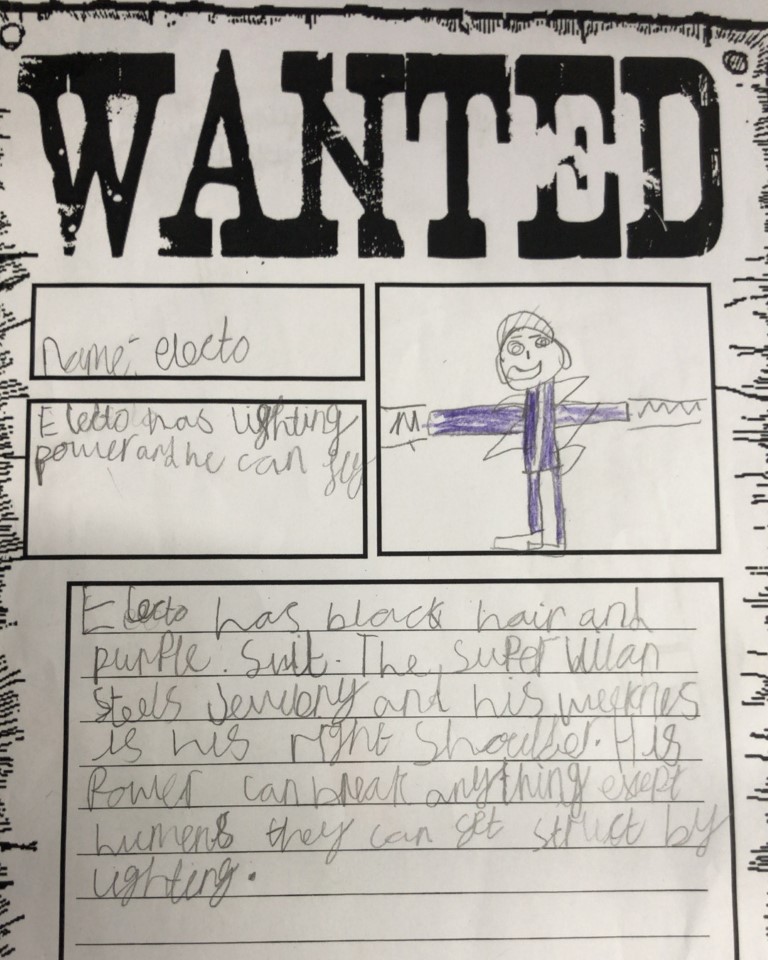 WANTED
Name: electo
Electo has lighting
power and he can fly
Electo has black hair and
purple. Suit. The super villan
steels jewlony and his weeknes
is his right shoulder. His
Power can break anything exept
humens they can get struct by
lighting.